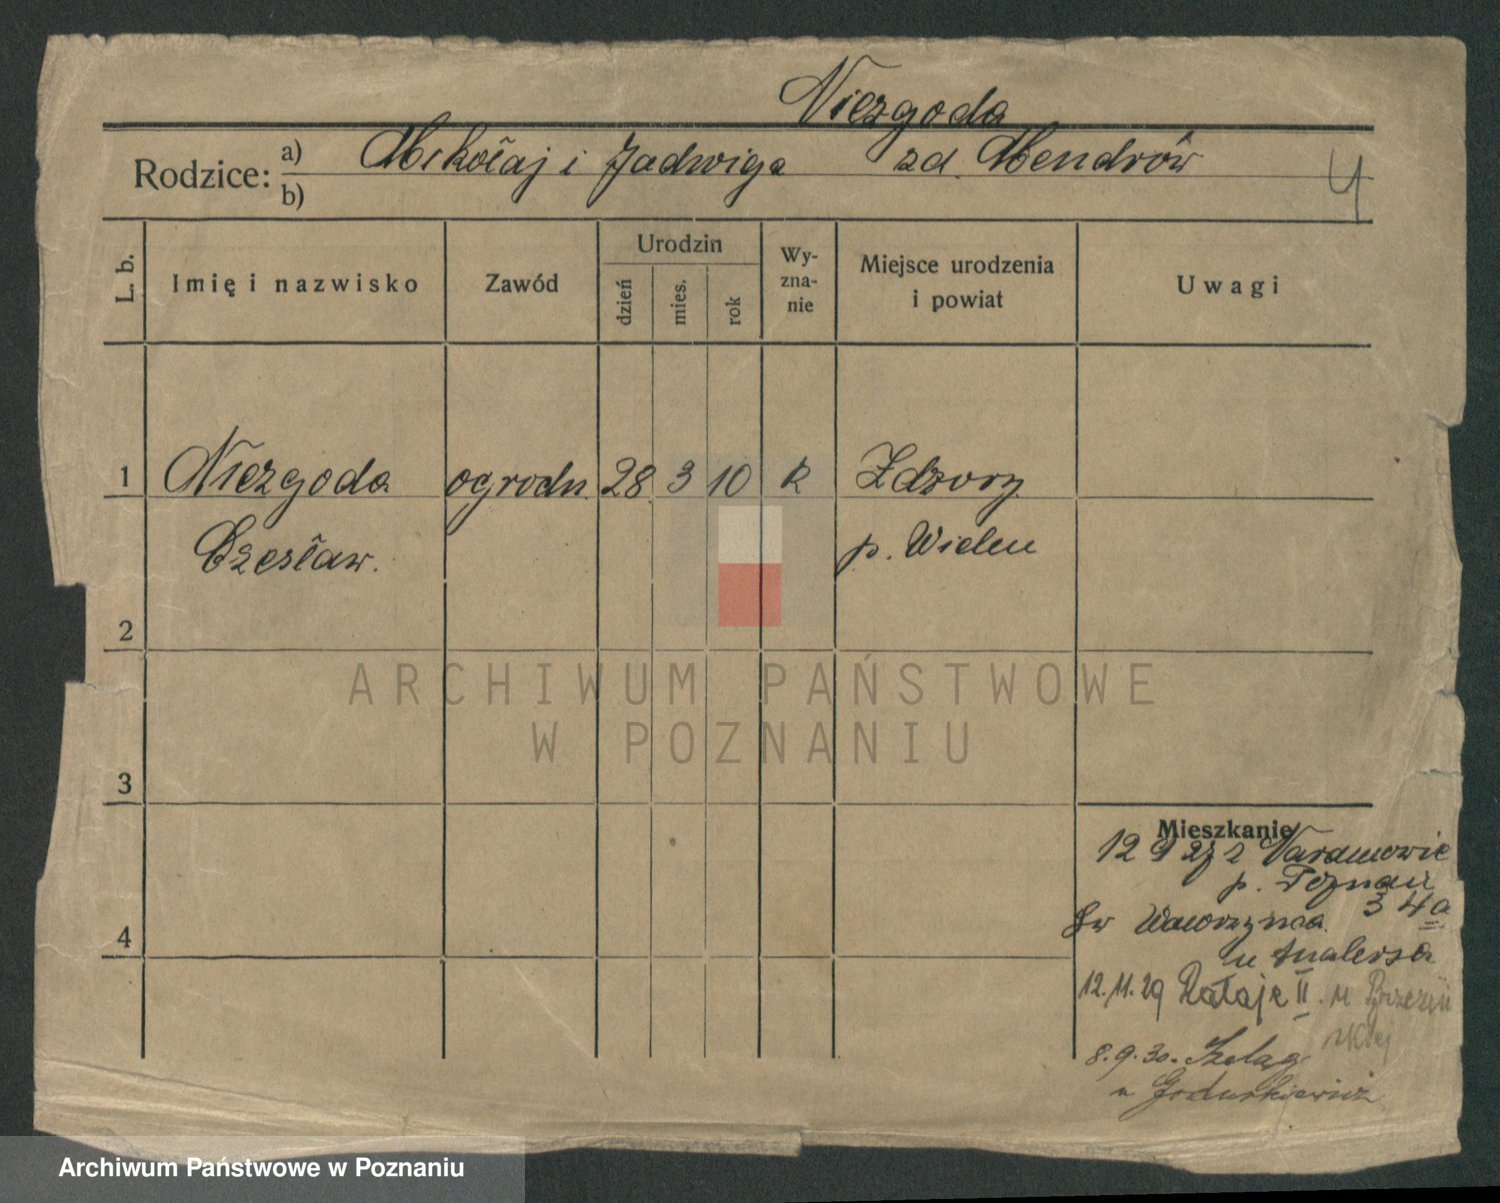 Niezgoda
Rodzice: a) Mikołaj i Jadwiga zd. Mendrów
b)
4
L. b. Imię i nazwisko Zawód Urodzin dzień mies. rok Wy-zna-nie Miejsce urodzenia i powiat Uwagi
1 Niezgoda ogrodn. 28 3 10 R Zdzory
Czesław. p. Wieleń
2
3
4
Mieszkanie
12 9 27 z Naramowic
p. Poznań
Św Wawrzyńca 34a
u
12.11.29 Rataje II. u
8.9.30. Szeląg
u
ARCHIWUM PAŃSTWOWE
W POZNANIU
Archiwum Państwowe w Poznaniu